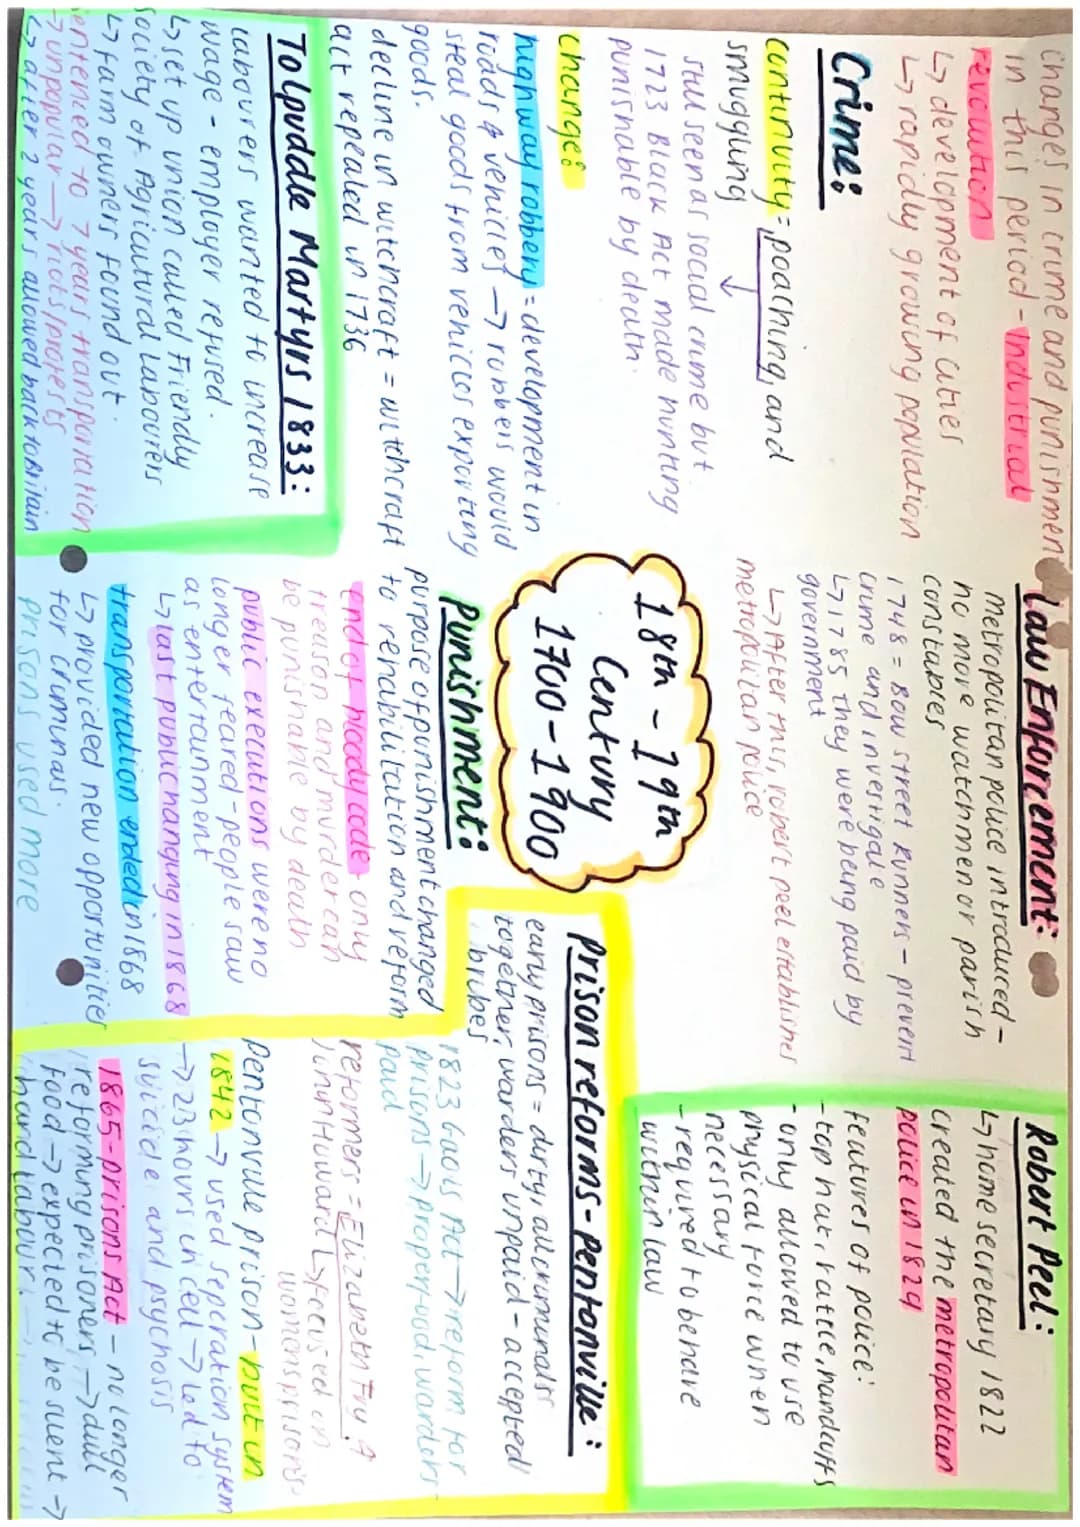 changes in crime and punishment
in this period - industrial
revolution
↳ development of cities
↳ rapidly growing population
Crime:
continuity = poaching, and
smuggling ↓
still seen as social crime but
1723 Black Act made hunting
punishable by death.
change:
highway robbery = development in
roads & vehicles → robbers would
steal goods from vehicles exporting
goods.
decline in witchcraft = witchcraft
act repealed in 1736
Tolpuddle Martyrs 1833:
labourers wanted to increase
wage - employer refused.
↳ set up union called Friendly
Society of Agricultural Labourers
↳ farm owners found out.
sentenced to 7 years transporation
→ unpopular → riots/protests
↳ after 2 years allowed back to Britain
Law Enforcement:
Metropolitan police introduced -
no more watchmen or parish
constables
1748 = Bow street Runners - prevent
crime and investigate
↳ 1785 they were being paid by
government
↳ After this, robert peel establishes
metropolitan police
18th - 19th
Century
1700 - 1900
Punishment:
purpose of punishment changed
to rehabilitation and reform
end of bloody code - only
treason and murder can
be punishable by death
public executions were no
longer feared - people saw
as entertainment
↳ last public hanging in 1868
transportation ended in 1868
↳ provided new opportunities
for criminals.
prisons used more
Robert Peel:
↳ home secretary 1822
created the metropolitan
police in 1829
features of police:
- top hat, rattle, handcuffs
- only allowed to use
physical force when
necessary
- required to behave
within law
Prison reforms - Pentonville:
early prisons = dirty, all criminals
together, warders unpaid - accepted
bribes
1823 Gaols Act → reform for
prisons → proper food, warders
paid
reformers = Elizabeth Fry &
John Howard ↳ focused on
womens prisons
Pentonville prison - built in
1842 → used seperation system
→ 23 hours in cell → led to
suicide and psychosis
1865 - prisons Act - no longer
reforming prisoners → dull
food → expected to be silent →
hard labour.